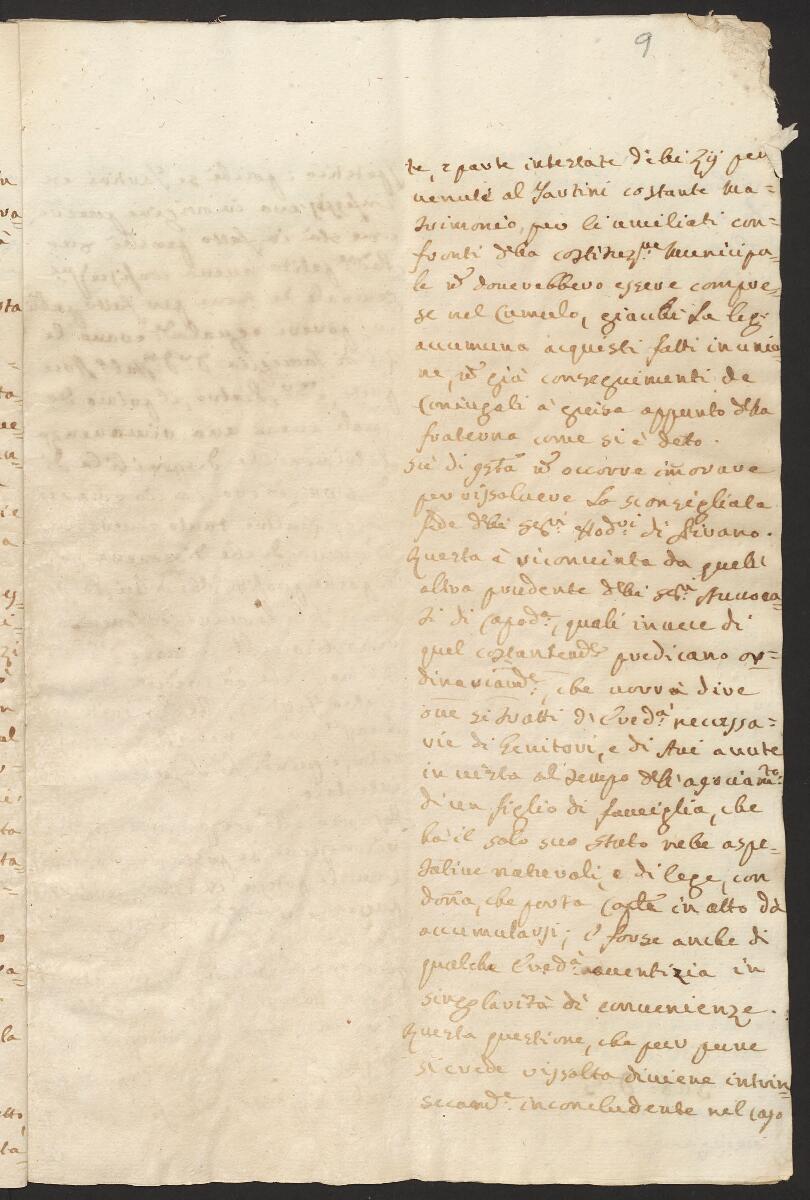 9
te, e parte intestate delli Zij per
uenute al Santini costante Ma=
trimonio, per li umiliati con=
fronti della costituz.ne Municipa=
le ñ douerebbero essere compre=
se nel Cumulo, giachè la leg:
accumuna acquisti fatti in unio=
ne, ñ già conseguimenti de
Coniugali à guisa appunto della
fraterna come si è deto.
Sù di gsta ñ occorre imorare
per rissoluere la sconsigliata
fede delli SS.ri Nod.ri di
Questa è riconuinta da quell'
altra prudente delli SS.ri Auuoca=
ti di Capod.a, quali inuece di
quel costantem.te predicano or=
dinariam.te, che uorrà dire
oue si tratti di Ered.à necessa=
rie di Genitori, e di Aui auute
in uista al tempo dell'
di un figlio di fameiglia, che
hà il solo suo stato nelle aspe=
tatiue naturali, e di lege, con
dona, che porta in atto dà
accumularsi; è forse anche di
qualche Ered.à auentizia in
singolarità di conuenienze.
Questa questione, che pur pure
si crede rissolta diuiene intrin=
secam.te inconcludente nel caso